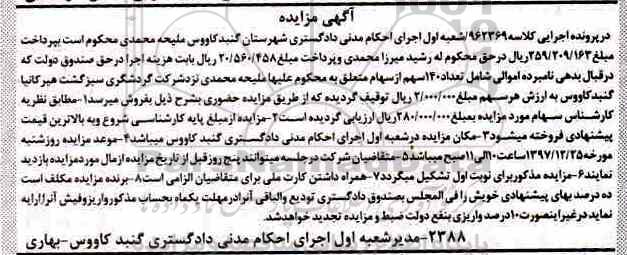 آگهی مزایده
در پرونده اجرایی کلاسه ۹۶۲۳۶۹/شعبه اول اجرای احکام مدنی دادگستری شهرستان گنبدکاووس ملیحه محمدی محکوم است بپرداخت
مبلغ۲۵۹/۲۰۹/۱۶۳ریال درحق محکوم له رشید میرزا محمدی وپرداخت مبلغ۲۰/۵۶۰/۴۵۸ ریال بابت هزینه اجرا درحق صندوق دولت که
درقبال بدهی نامبرده اموالی شامل تعداد۱۴۰سهم ازسهام متعلق به محکوم علیها ملیحه محمدی نزدشرکت گردشگری سبزگشت هیرکانیا
گنبدکاووس به ارزش هرسهم مبلغ۲/۰۰۰/۰۰۰ ریال توقیف گردیده که از طریق مزایده حضوری بشرح ذیل بفروش میرسد۱-مطابق نظریه
کارشناس سهام مورد مزایده بمبلغ۲۸۰/۰۰۰/۰۰۰ریال ارزیابی گردیده است۲-مزایده ازمبلغ پایه کارشناسی شروع وبه بالاترین قیمت
پیشنهادی فروخته میشود۳-مکان مزایده درشعبه اول اجرای احکام مدنی دادگستری گنبد کاووس میباشد۴-موعد مزایده روزشنبه
مورخه۱۳۹۷/۱۲/۲۵ساعت۱۰الی۱۱صبح میباشد۵-متقاضیان شرکت درجلسه میتوانند پنج روزقبل از تاریخ مزایده ازمال موردمزایده بازدید
نمایند۶-مزایده مذکوربرای نوبت اول تشکیل میگردد۷-همراه داشتن کارت ملی برای متقاضیان الزامی است۸-برنده مزایده مکلف است
ده درصد بهای پیشنهادی خویش را فی المجلس بصندوق دادگستری تودیع والباقی آنرادرمهلت یکماه بحساب مذکورواریزوفیش آنراارایه
نماید درغیراینصورت۱۰درصد واریزی بنفع دولت ضبط و مزایده تجدید خواهدشد.
۲۳۸۸-مدیرشعبه اول اجرای احکام مدنی دادگستری گنبد کاووس-بهاری